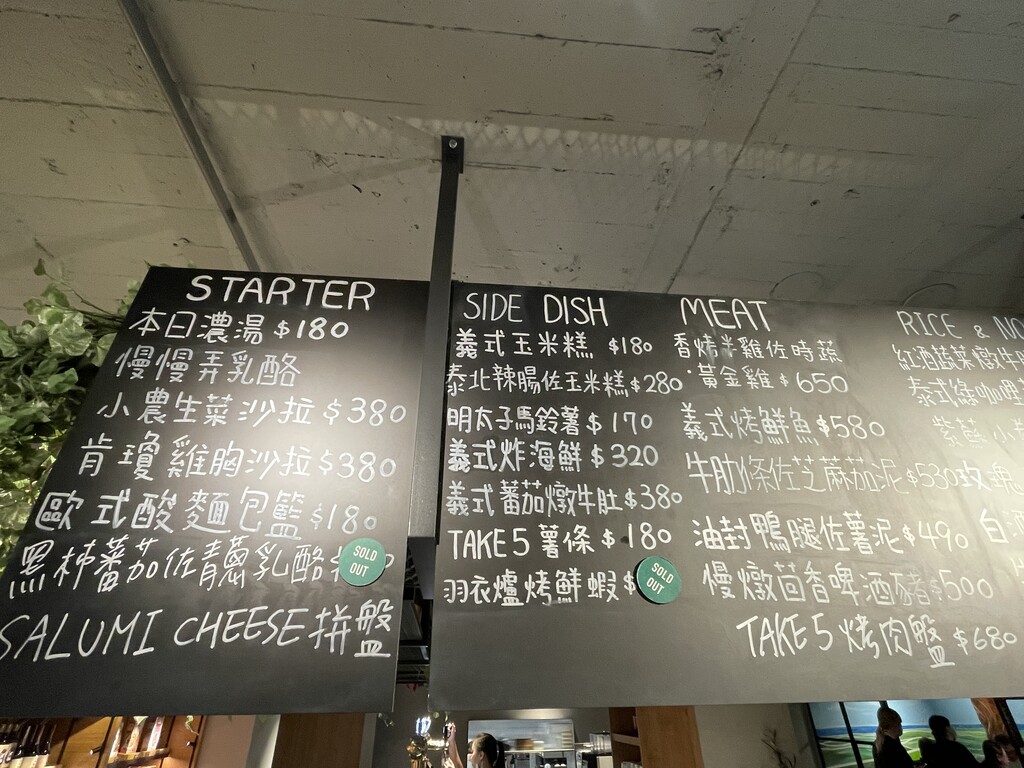 STARTER
本日濃湯 $180
慢慢弄乳酪
小農生菜沙拉 $380
肯瓊雞胸沙拉 $380
歐式酸麵包籃 $180
黑柿蕃茄佐青蔥乳酪 $
SOLD OUT
SALUMI CHEESE 拼盤
SIDE DISH
義式玉米糕 $180
泰北辣腸佐玉米糕 $280
明太子馬鈴薯 $170
義式炸海鮮 $320
義式蕃茄燉牛肚 $380
TAKE 5 薯條 $180
羽衣爐烤鮮蝦 $
SOLD OUT
MEAT
香烤半雞佐時蔬
·黃金雞 $650
義式烤鮮魚 $580
牛肋條佐芝麻茄泥 $530
油封鴨腿佐薯泥 $490
慢燉茴香啤酒豬 $500
TAKE 5 烤肉盤 $680
RICE & NO
紅酒蔬菜燉牛
泰式綠咖哩
白酒